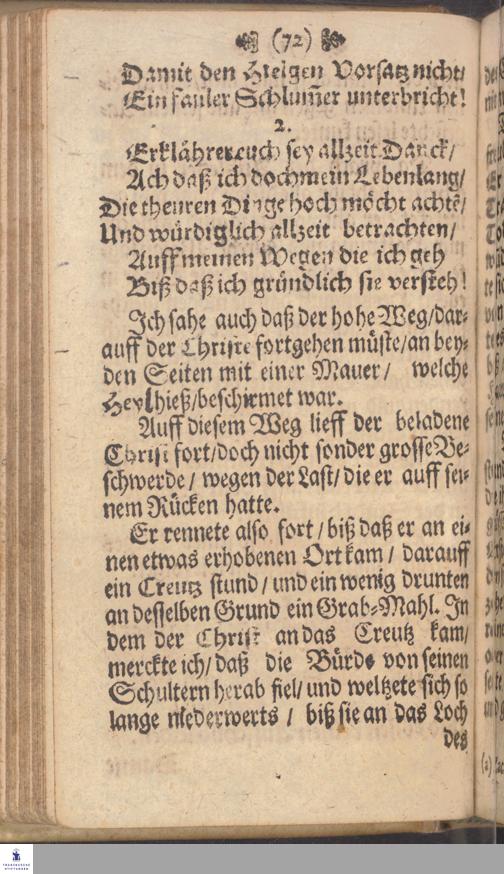 (72)
Damit den Heiigen Vorsatz nicht/
Ein fauler Schlum̃er unterbricht!
2.
Erklährer euch sey allzeit Danck/
Ach daß ich doch mein Lebenlang/
Die theuren Dinge hoch möcht achtē/
Und würdiglich allzeit betrachten/
Auff meinen Wegen die ich geh
Biß daß ich gründlich sie versteh!
Ich sahe auch daß der hohe Weg/dar-
auff der Christe fortgehen müste/an bey-
den Seiten mit einer Mauer/ welche
Heyl hieß/beschirmet war.
Auff diesem Weg lieff der beladene
Christ fort/doch nicht sonder grosse Be-
schwerde/ wegen der Last/ die er auff sei-
nem Rücken hatte.
Er rennete also fort/ biß daß er an ei-
nen etwas erhobenen Ort kam/ darauff
ein Creutz stund/ und ein wenig drunten
an desselben Grund ein Grab-Mahl. In
dem der Christ an das Creutz kam/
merckte ich/ daß die Bürde von seinen
Schultern herab fiel/ und weltzete sich so
lange niederwerts/ biß sie an das Loch
des